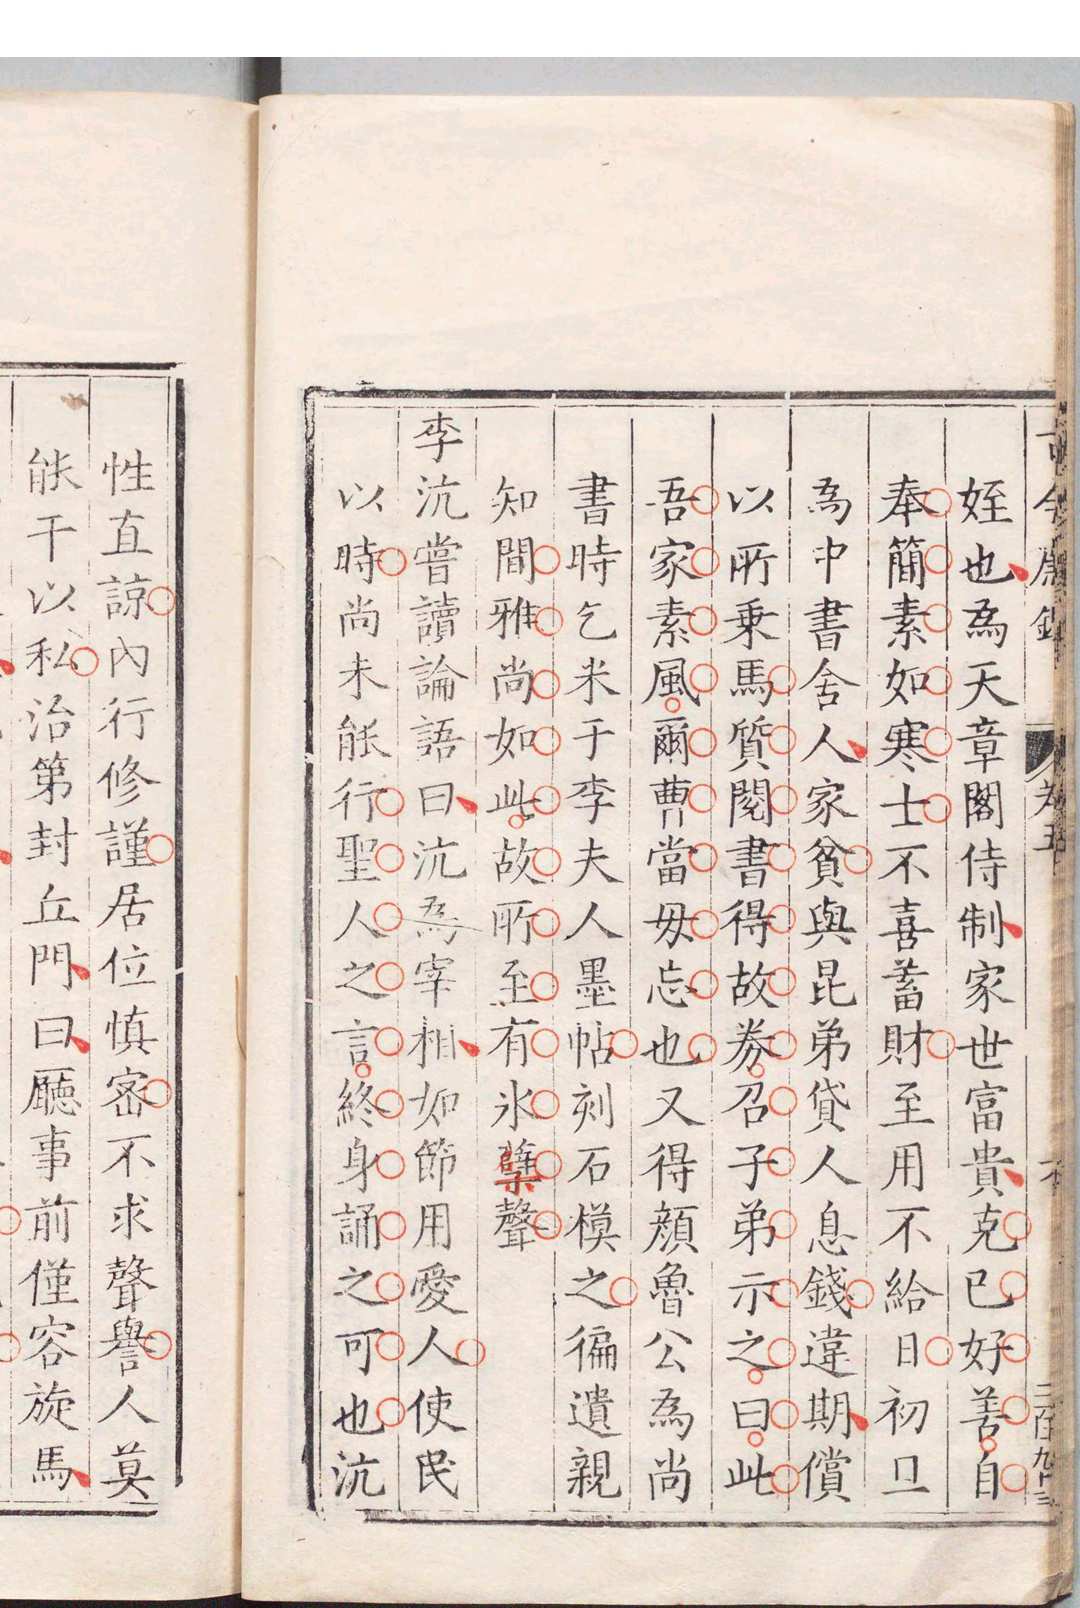 古今廉鑑 卷五
姪也為天章閣侍制家世富貴克已好善自
奉簡素如寒士不喜蓄財至用不給日初旦
為中書舍人家貧與昆弟貸人息錢違期償
以所乗馬質閱書得故券召子弟示之曰此
吾家素風爾曹當毋忘也又得顔魯公為尚
書時乞米于李夫人墨帖刻石模之徧遺親
知間雅尚如此故所至有氷蘖聲
李沆嘗讀論語曰沆為宰相如節用愛人使民
以時尚未能行聖人之言終身誦之可也沆
性直諒內行修謹居位慎密不求聲譽人莫
能干以私治第封丘門曰廳事前僅容旋馬